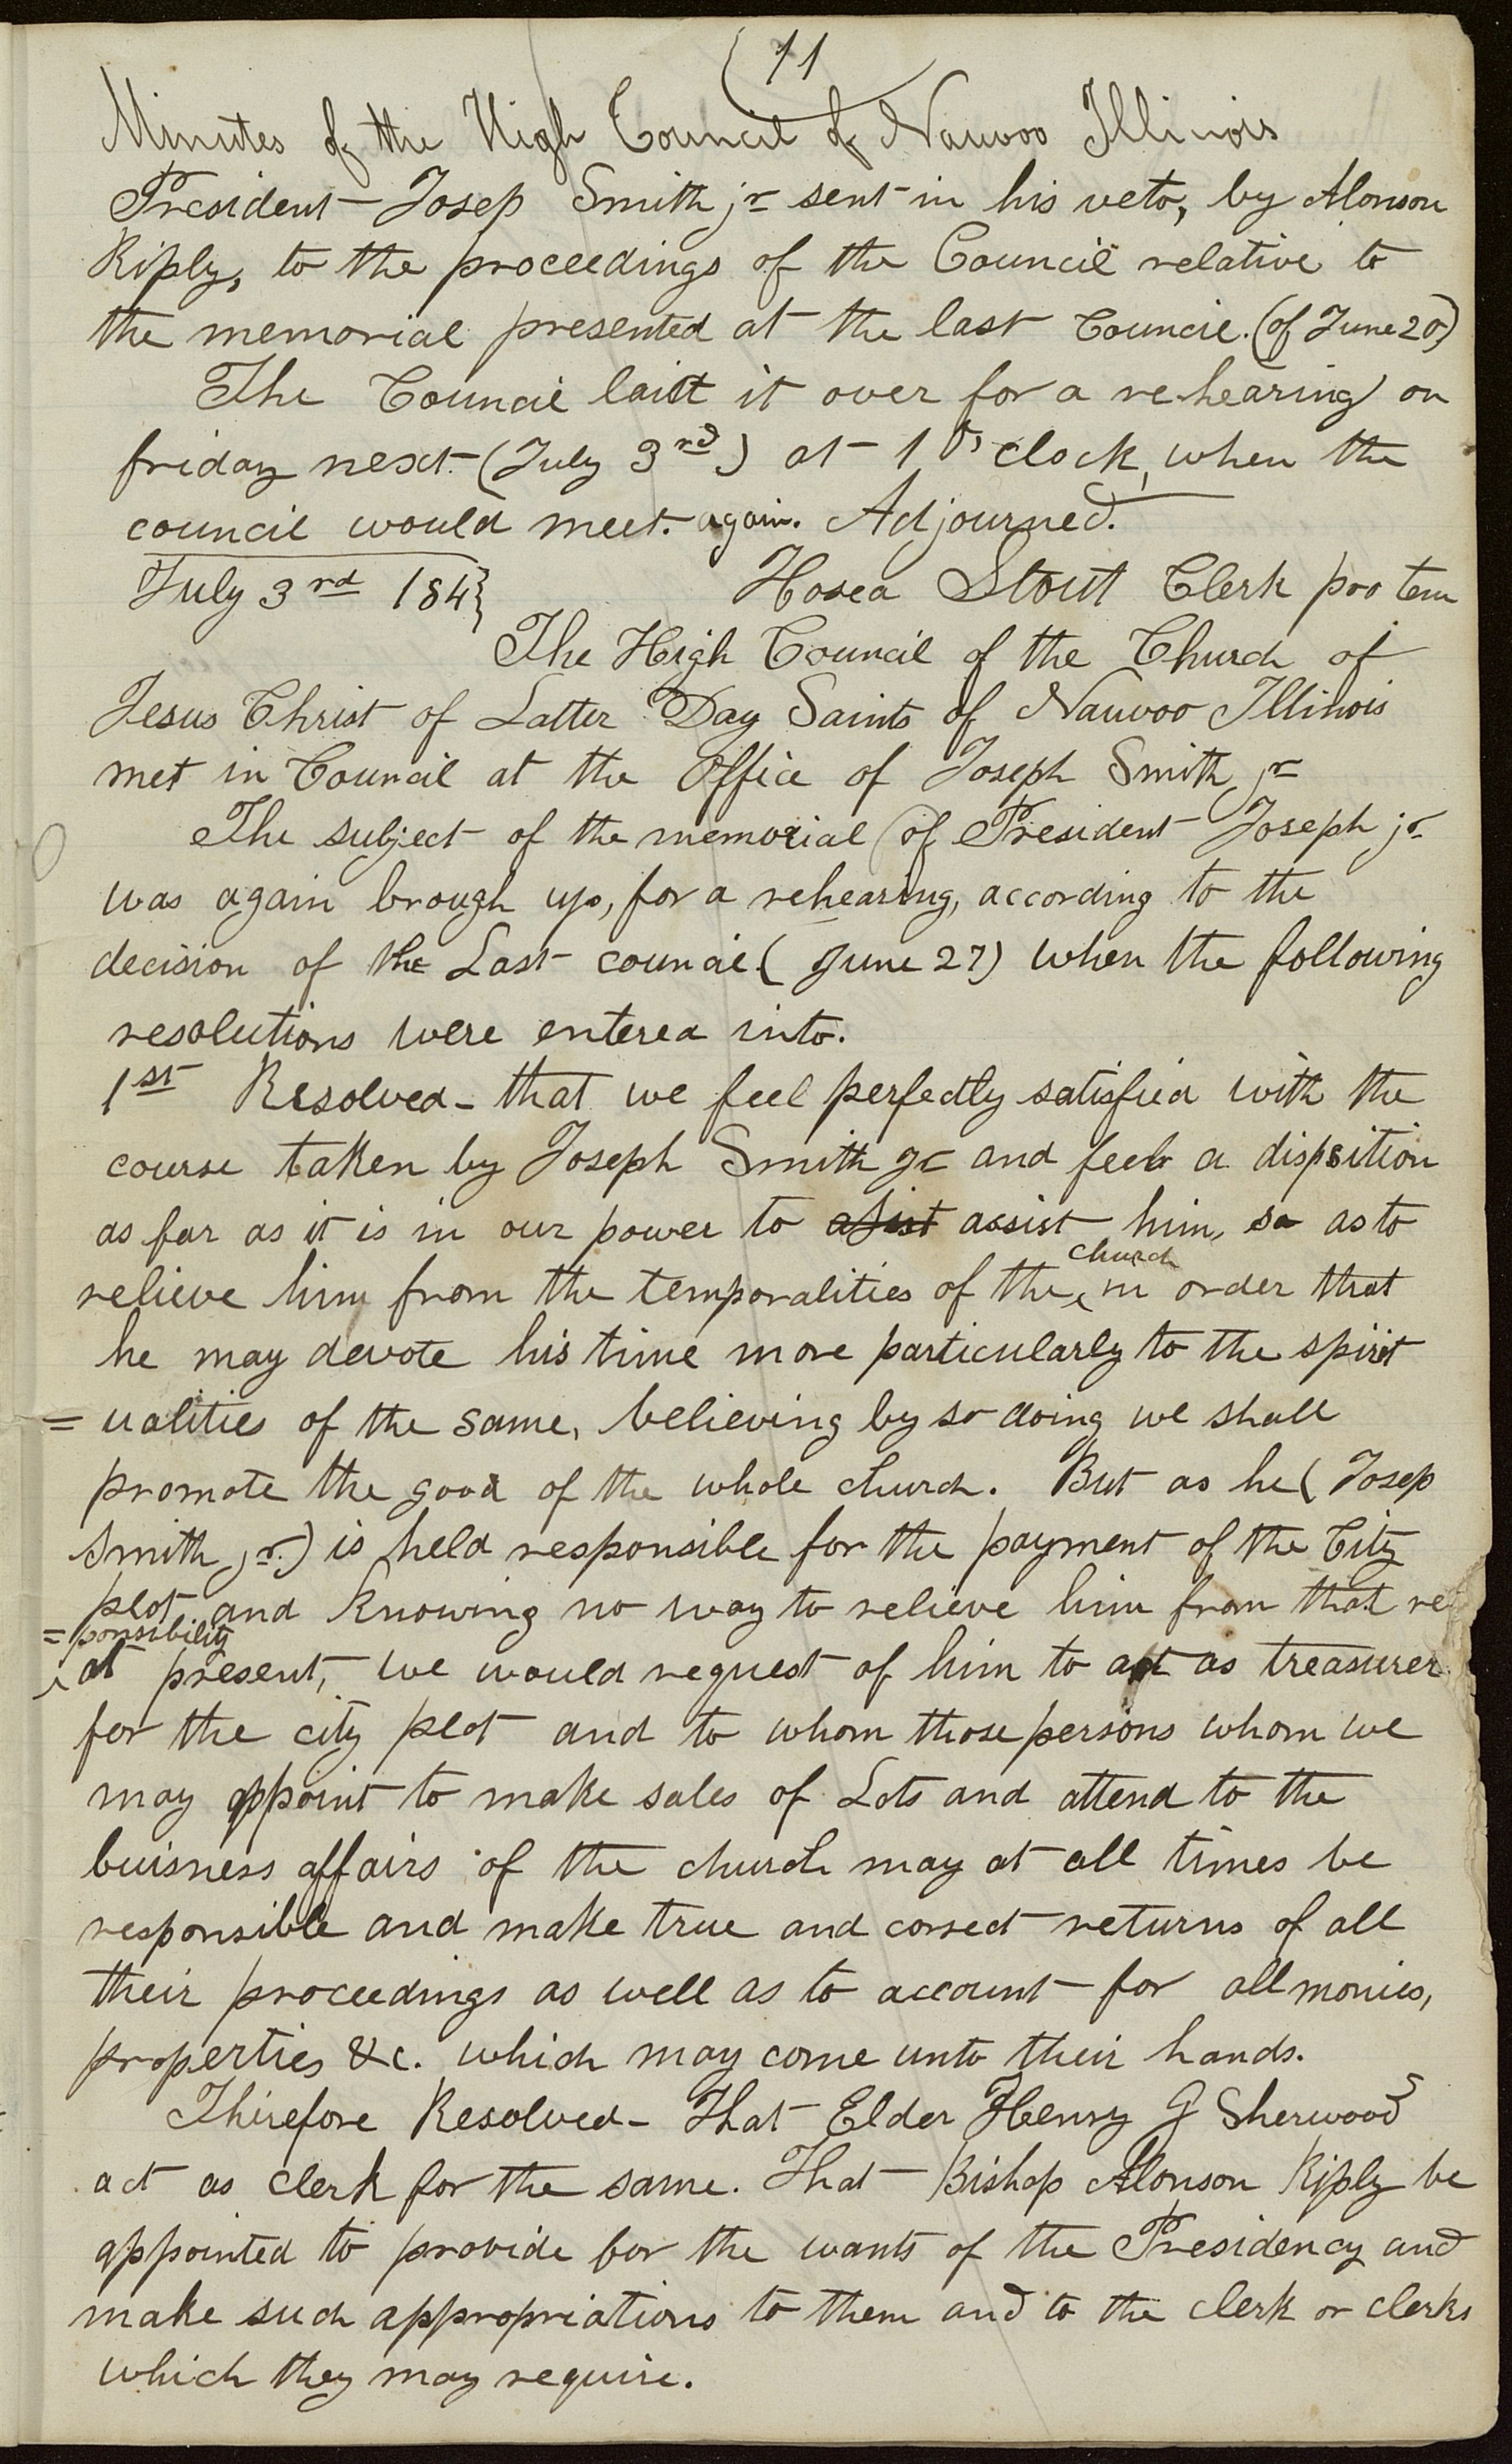 11
Minutes of the High Council of Nauvoo Illinois
President Josep Smith jr sent in his veto, by Alonson
Riply, to the proceedings of the Council relative to
the memorial presented at the last Council. (of June 20)
The Council laid it over for a re-hearing on
friday next (July 3rd) at 1 o, clock, when the
council would meet. again. Adjourned.
July 3rd 184} Hosea Stout Clerk pro tem
The High Council of the Church of
Jesus Christ of Latter Day Saints of Nauvoo Illinois
met in Council at the Office of Joseph Smith jr
The subject of the memorial (of President Joseph jr
was again brough up, for a rehearing, according to the
decision of the Last council (June 27) when the following
resolutions were entered into.
1st Resolved - that we feel perfectly satisfied with the
course taken by Joseph Smith Jr and feel a dispsition
as far as it is in our power to asist assist him, so as to
church
relieve him from the temporalities of the in order that
he may devote his time more particularly to the spirit
= ualities of the same, believing by so doing we shall
promote the good of the whole church. But as he (Josep
Smith jr.) is held responsible for the payment of the City
plot and knowing no way to relieve him from that re
=ponsibility
at present, we would request of him to act as treasurer
for the city plot and to whom those persons whom we
may appoint to make sales of Lots and attend to the
buisness affairs of the church may at all times be
responsible and make true and correct returns of all
their proceedings as well as to account for all monies,
properties &c. which may come unto their hands.
Therefore Resolved - That Elder Henry G Sherwood
act as clerk for the same. That Bishop Alonson Riply be
appointed to provide for the wants of the Presidency and
make such appropriations to them and to the clerk or clerks
which they may require.